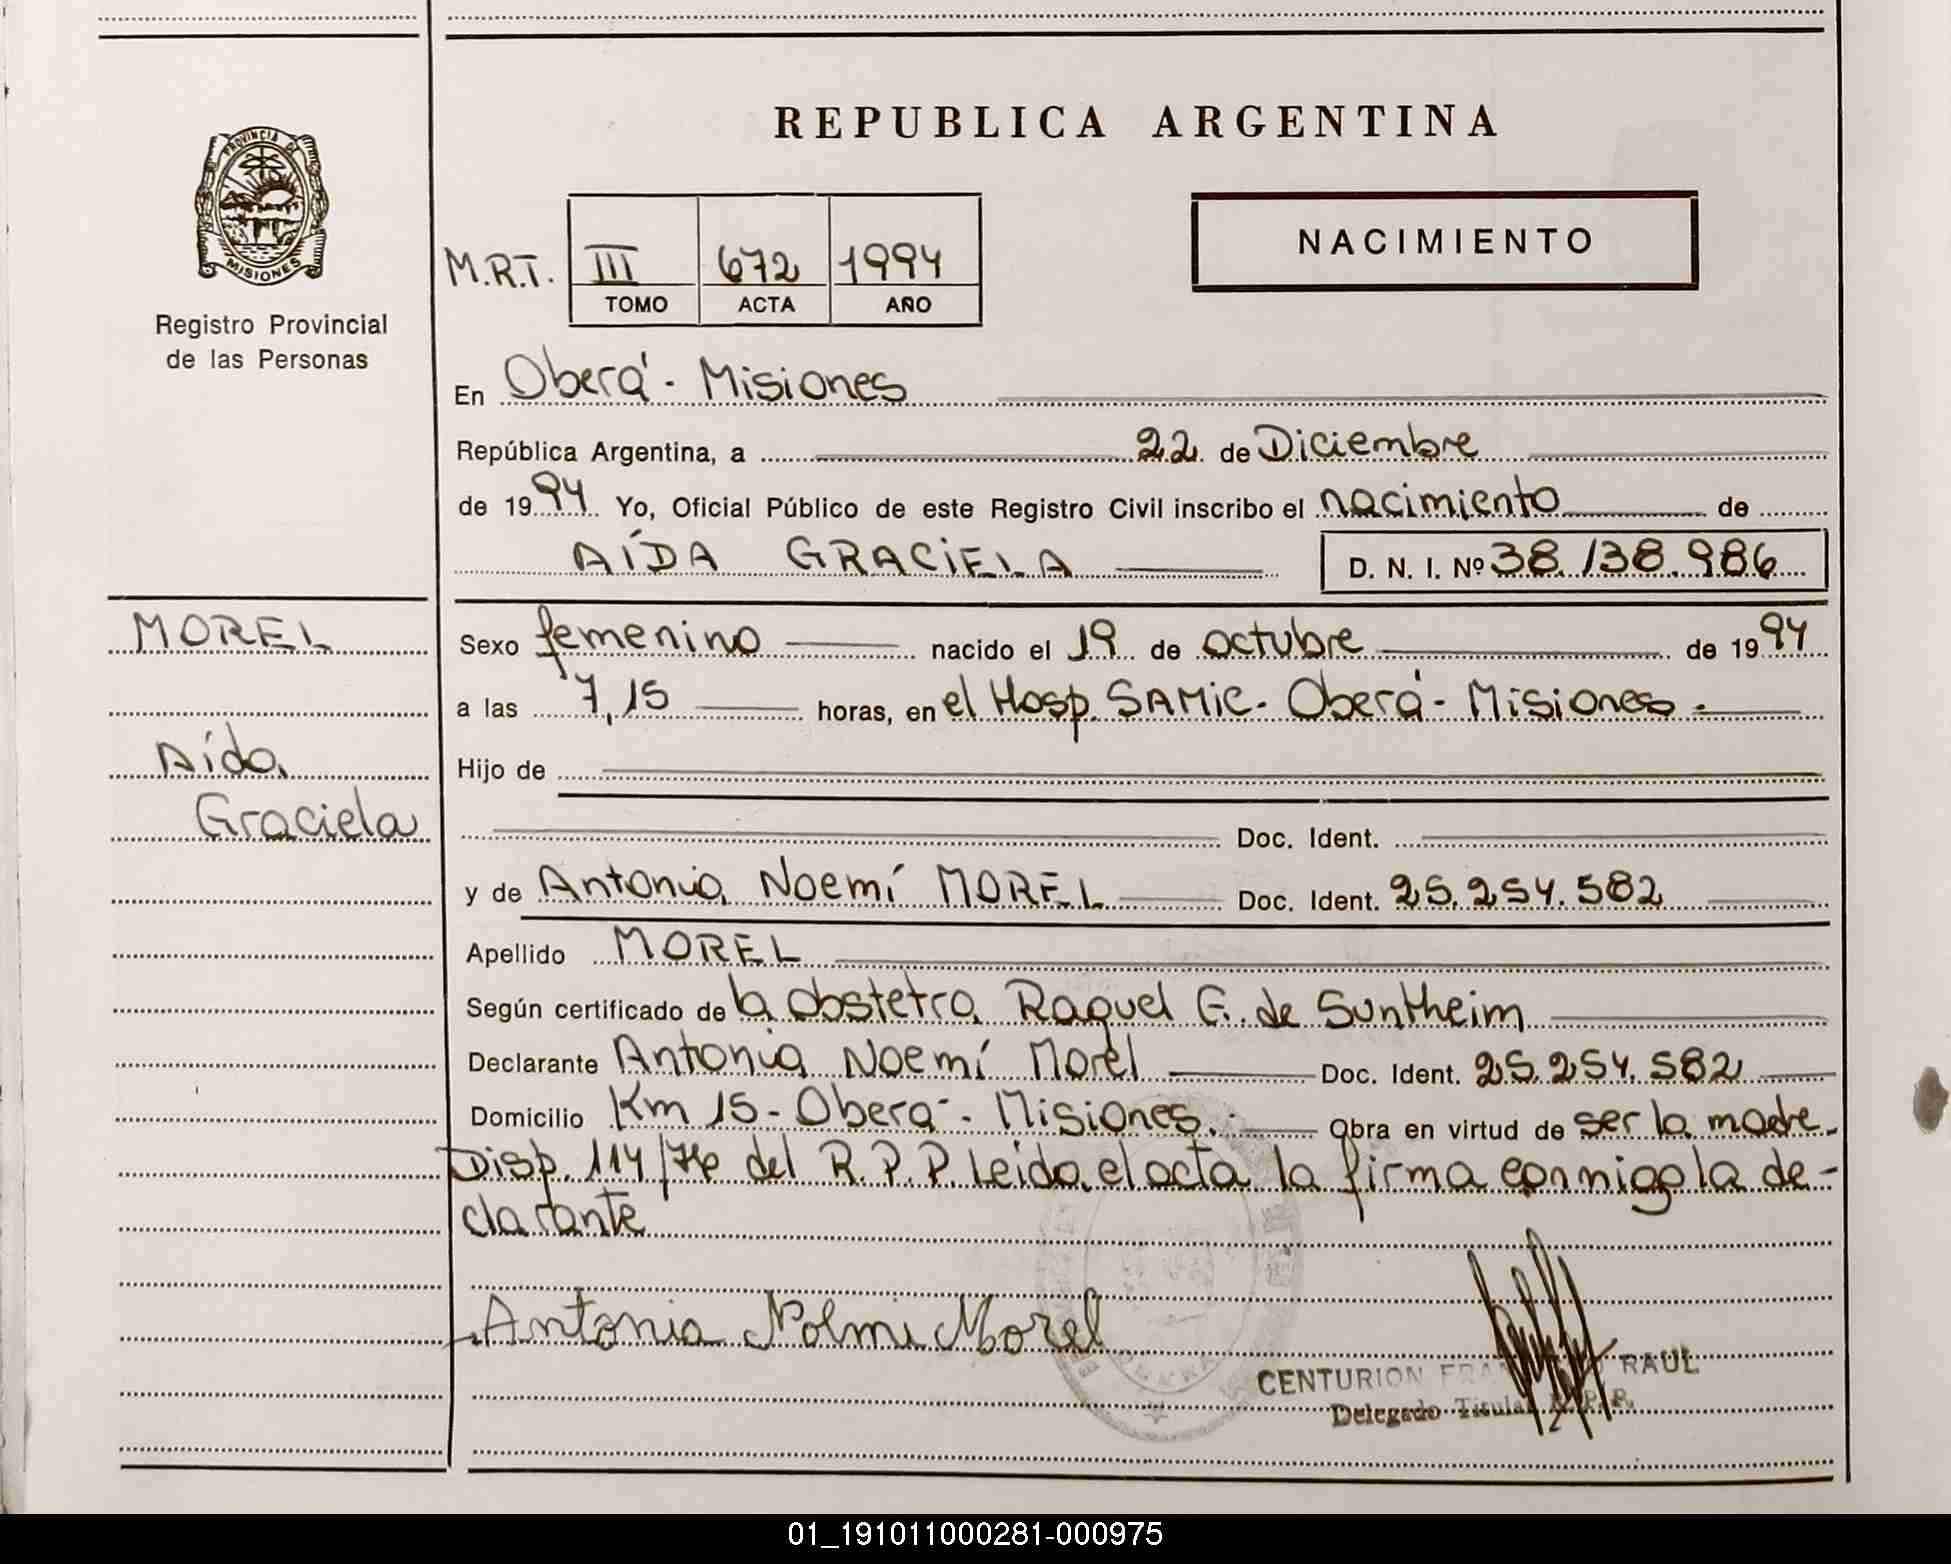 REPUBLICA ARGENTINA
PROVINCIA DE
MISIONES
Registro Provincial
de las Personas
M.R.T. III 672 1994
TOMO ACTA AÑO
NACIMIENTO
En Oberá - Misiones
República Argentina, a 22 de Diciembre
de 1994 Yo, Oficial Público de este Registro Civil inscribo el nacimiento de
AÍDA GRACIELA D. N. I. Nº 38.138.986
MOREL
Aída
Graciela
Sexo femenino nacido el 19 de octubre de 1994
a las 7,15 horas, en el Hosp. SAMIC - Oberá - Misiones.
Hijo de
Doc. Ident.
y de Antonia Noemí MOREL Doc. Ident. 25.254.582
Apellido MOREL
Según certificado de la obstetra Raquel G. de Suntheim
Declarante Antonia Noemí Morel Doc. Ident. 25.254.582
Domicilio Km 15 - Oberá - Misiones. Obra en virtud de ser la madre.
Disp. 114/76 del R.P.P. Leida el acta la firma conmigo la de-
clarante
Antonia Nolmi Morel
CENTURION RAUL
Delegado Titular R.P.P.
01_191011000281-000975